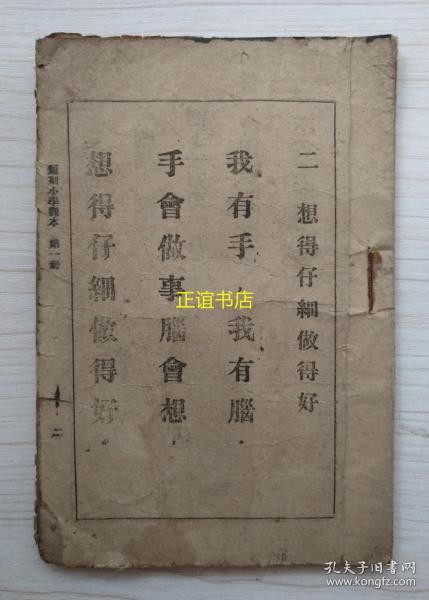 二 想得仔細做得好
我有手，我有腦．
手會做事腦會想．
想得仔細做得好．
短期小學課本 第一册
二
正谊书店
孔夫子旧书网
www.kongfz.com